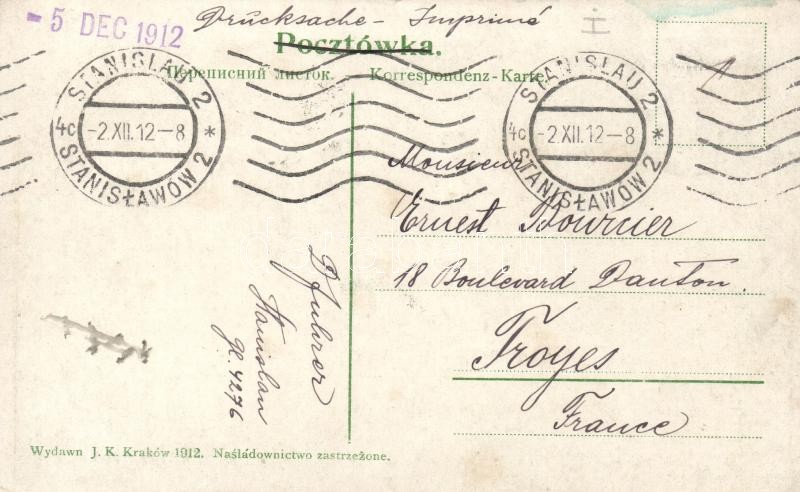 - 5 DEC 1912
Drucksache - Imprimé
Pocztówka.
Переписний листок. Korrespondenz-Karte.
STANISLAU 2
4c -2.XII.12-8 *
STANISŁAWÓW 2
STANISLAU 2
4c -2.XII.12-8 *
STANISŁAWÓW 2
Monsieur
Ernest Bourcier
18 Boulevard Danton.
Troyes
France
Stanislau
4276
Wydawn J. K. Kraków 1912. Naśladownictwo zastrzeżone.